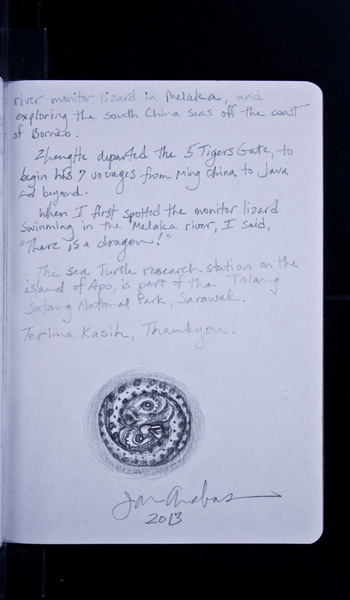 river monitor lizard in Melaka, and
exploring the south China seas off the coast
of Borneo.
ZhengHe departed the 5 Tigers Gate, to
begin his 7 voyages from Ming China, to Java
and beyond.
When I first spotted the monitor lizard
swimming in the Melaka river, I said,
"There is a dragon!"
The sea Turtle research station on the
island of Apo, is part of the Talang
Satang National Park, Sarawak.
Terima Kasih, Thankyou.
2013